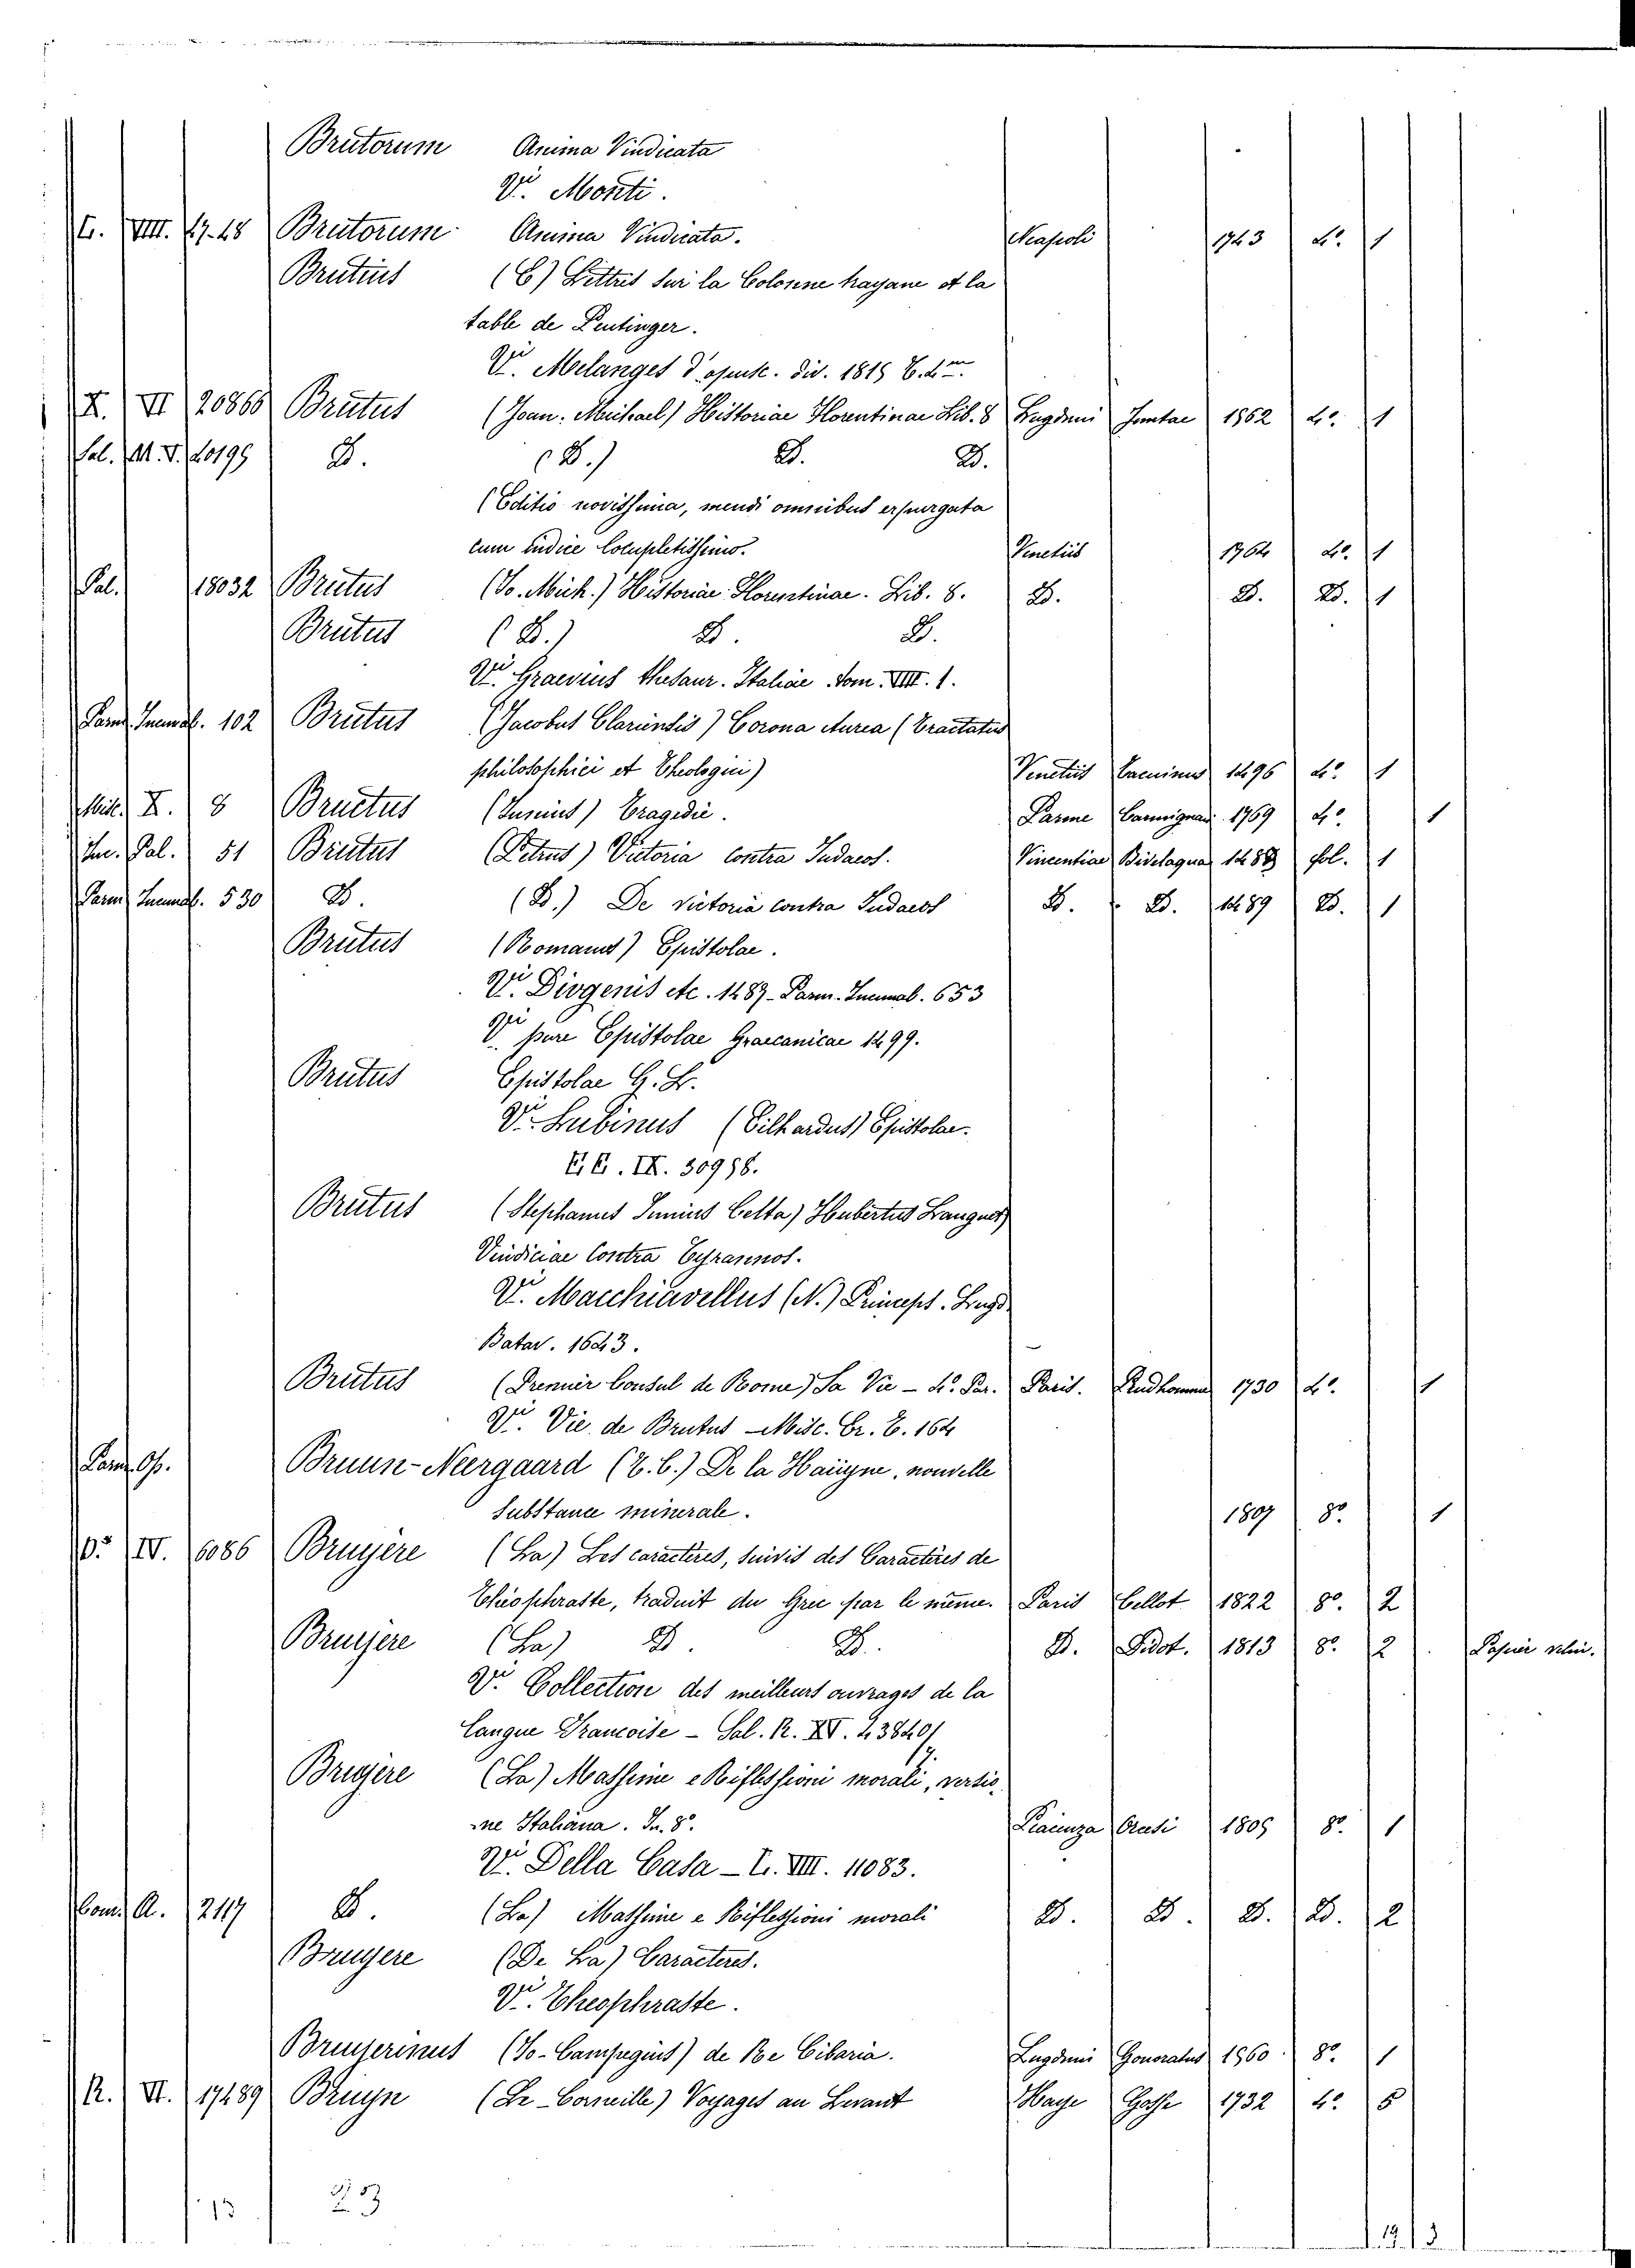 Brutorum Anima Vindicata
Vi. Monti.
VIII. Brutorum Anima Vindicata. Neapoli 1743 4º. 1
Brutius (C) Lettres sur la Colonne trayane et la
table de Peutinger.
Vi. Melanges d'opusc. div. 1815 4.
X. VI 20868 Brutus (Joan. Michael) Historiae Florentinae Lib. 8 Lugduni Juntae 1562 4º. 1
Sal. M. V. 20199 D. (D.) D. D.
(Editio novissima, mendi omnibus expurgata
cum indice locupletissimo. Venetiis 1764 4º. 1
Pal. 18032 Brutus (Jo. Mich.) Historiae Florentinae. Lib. 8. D. D. D. 1
Brutus (D.) D. D.
Vi. Graevius thesaur. Italiae Tom. VIII. 1.
Parm. Incunab. 102 Brutus (Jacobus Clariensis) Corona Aurea (Tractatus
philosophici et Theologici) Venetiis Tacuinus 1496 4º. 1
Misc. X. 8 Bructus (Junius) Tragedie. Parme Carmignani 1769 4º. 1
Inc. Pal. 51 Brutus (Petrus) Victoria contra Judaeos. Vincentiae Bivelaqua 1489 fol. 1
Parm. Incunab. 530 D. (D.) De victoria contra Judaeos D. D. 1489 D. 1
Brutus (Romanus) Epistolae.
Vi. Diogenis etc. 1487 - Parm. Incunab. 653
Vi. pure Epistolae Graecanicae 1499.
Brutus Epistolae G. L.
Vi. Lubinus (Eilhardus) Epistolae.
IX. 30958.
Brutus (Stephanus Junius Celta) Hubertus Languet)
Vindiciae Contra Tyrannos.
Vi. Macchiavellus (N.) Princeps. Lugd.
Batav. 1643.
Brutus (Premier Consul de Rome) Sa Vie - 4º. Par. Paris. Prudhomme 1730 4º. 1
Vi. Vie de Brutus - Misc. Er. 164
Parm. Op. Bruun-Neergaard (T.C.) De la Haüyne, nouvelle
Substance minerale. 1807 8º. 1
IV. 6086 Bruyere (La) Les caracteres, suivis des Caractères de
Théophraste, traduit du Grec par le même. Paris Cellot 1822 8º. 2
Bruyere (La) D. D. D. Didot. 1813 8º. 2 Papier velin.
Vi. Collection des meilleurs ouvrages de la
langue Francoise - Sal. R. XV. 23840/7.
Bruyere (La) Massime e Riflessioni morali, versio-
-ne Italiana. In 8º. Piacenza Orcesi 1805 8º. 1
Vi. Della Casa - VIII. 11083.
Com. A. 2117 D. (La) Massime e Riflessioni morali D. D. D. D. 2
Bruyere (De La) Caracteres.
Vi. Theophraste.
Bruyerinus (Jo-Campegius) de Re Cibaria. Lugduni Honoratus 1560 8º. 1
R. VI. 17489 Bruyn (Le - Corneille) Voyages au Levant Haye Gosse 1732 4º. 5
13 23
19 3